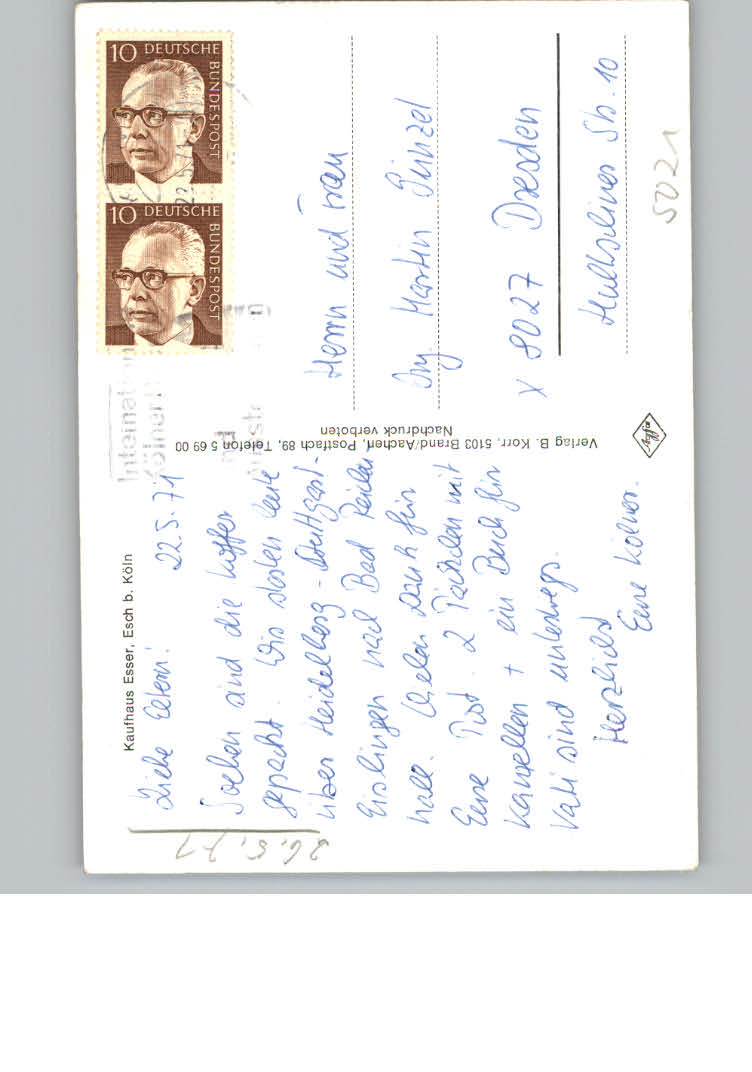 Kaufhaus Esser, Esch b. Köln
22.5.71
Liebe Eltern!
Soeben sind die Koffer
gepackt. Wir starten heute
über Heidelberg - Stuttgart -
Eislingen nach Bad Reichen-
hall. Vielen Dank für
Eure Post. 2 Päckchen mit
+ ein Buch für
Vati sind unterwegs.
Herzlichst
Eure Kölner.
26.5.71
Verlag B. Korr, 5103 Brand/Aachen, Postfach 89, Telefon 5 69 00
Nachdruck verboten
10 DEUTSCHE BUNDESPOST
10 DEUTSCHE BUNDESPOST
Herrn und Frau
Ing. Martin
X 8027 Dresden
Str. 10
5021